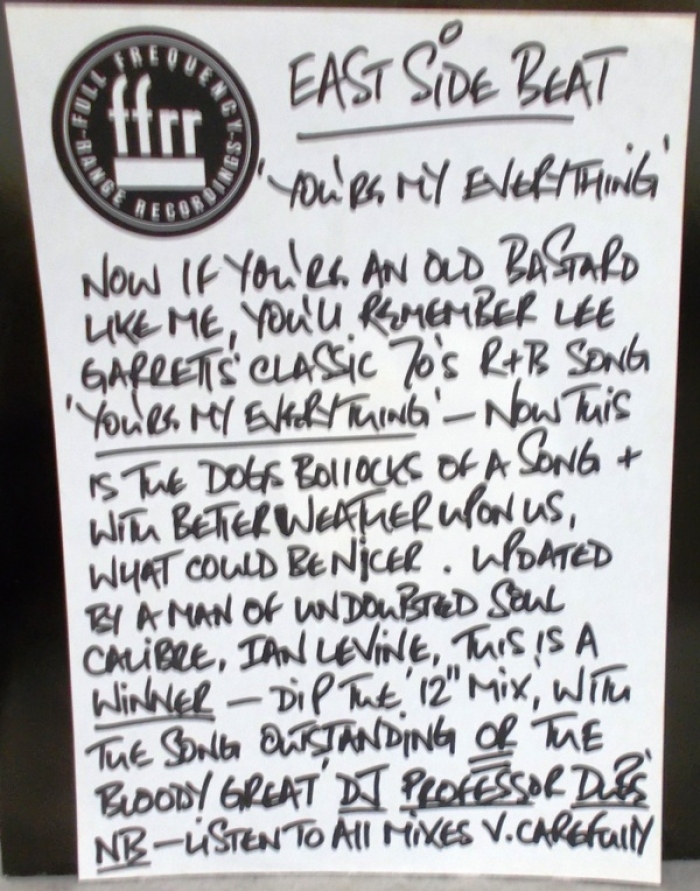 FULL FREQUENCY
ffrr
RANGE RECORDINGS
EAST SIDE BEAT
'YOU'RE MY EVERYTHING'
NOW IF YOU'RE AN OLD BASTARD
LIKE ME, YOU'LL REMEMBER LEE
GARRETTS' CLASSIC 70'S R+B SONG
'YOU'RE MY EVERYTHING' — NOW THIS
IS THE DOGS BOLLOCKS OF A SONG +
WITH BETTER WEATHER UPON US,
WHAT COULD BE NICER. UPDATED
BY A MAN OF UNDOUBTED SOUL
CALIBRE, IAN LEVINE, THIS IS A
WINNER — DIP THE '12" MIX', WITH
THE SONG OUTSTANDING OR THE
BLOODY GREAT 'DJ PROFESSOR DUBS'
NB — LISTEN TO ALL MIXES V. CAREFULLY